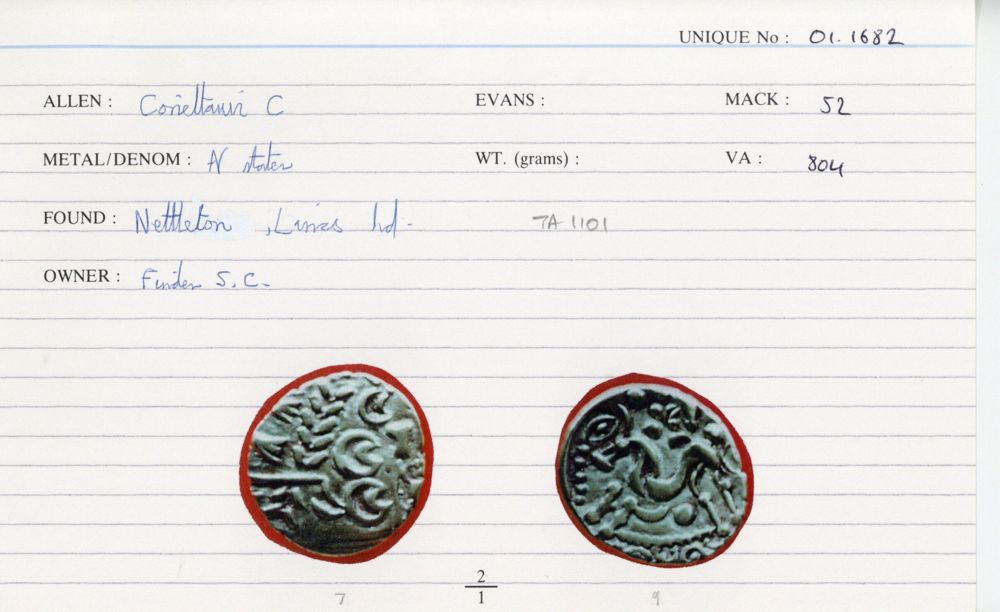 UNIQUE No : 01.1682
ALLEN : Corieltauvi C EVANS : MACK : 52
METAL/DENOM : AV stater WT. (grams) : VA : 804
FOUND : Nettleton, Lincs hd. TA 1101
OWNER : Finder S.C.
2
1
7 9